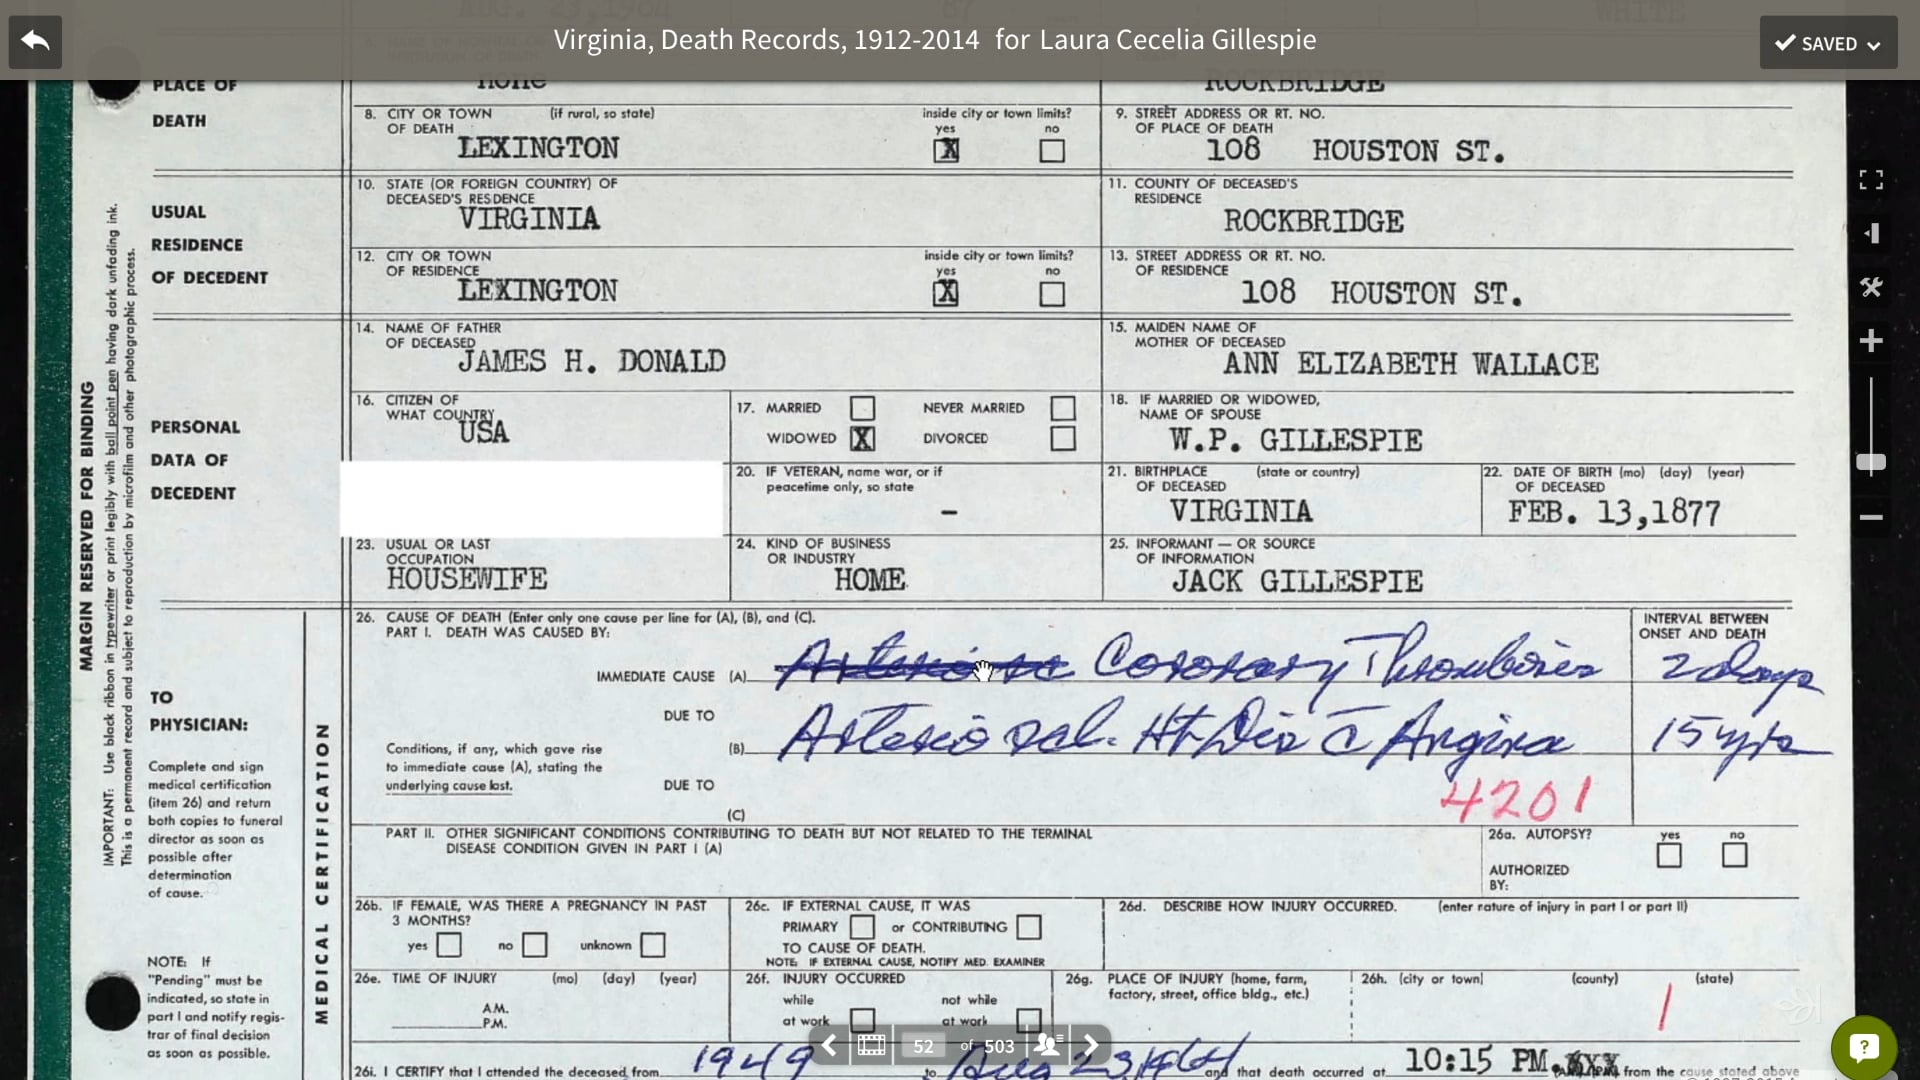 AUG. 23,1964 87 WHITE
Virginia, Death Records, 1912-2014 for Laura Cecelia Gillespie
SAVED
PLACE OF
DEATH
none
ROCKBRIDGE
8. CITY OR TOWN (if rural, so state) inside city or town limits?
OF DEATH yes no
LEXINGTON X
9. STREET ADDRESS OR RT. NO.
OF PLACE OF DEATH
108 HOUSTON ST.
USUAL
RESIDENCE
OF DECEDENT
10. STATE (OR FOREIGN COUNTRY) OF
DECEASED'S RESIDENCE
VIRGINIA
11. COUNTY OF DECEASED'S
RESIDENCE
ROCKBRIDGE
12. CITY OR TOWN inside city or town limits?
OF RESIDENCE yes no
LEXINGTON X
13. STREET ADDRESS OR RT. NO.
OF RESIDENCE
108 HOUSTON ST.
MARGIN RESERVED FOR BINDING
IMPORTANT: Use black ribbon in typewriter or print legibly with ball point pen having dark unfading ink.
This is a permanent record and subject to reproduction by microfilm and other photographic process.
PERSONAL
DATA OF
DECEDENT
14. NAME OF FATHER
OF DECEASED
JAMES H. DONALD
15. MAIDEN NAME OF
MOTHER OF DECEASED
ANN ELIZABETH WALLACE
16. CITIZEN OF
WHAT COUNTRY
USA
17. MARRIED NEVER MARRIED
WIDOWED X DIVORCED
18. IF MARRIED OR WIDOWED,
NAME OF SPOUSE
W.P. GILLESPIE
20. IF VETERAN, name war, or if
peacetime only, so state
–
21. BIRTHPLACE (state or country)
OF DECEASED
VIRGINIA
22. DATE OF BIRTH (mo) (day) (year)
OF DECEASED
FEB. 13,1877
23. USUAL OR LAST
OCCUPATION
HOUSEWIFE
24. KIND OF BUSINESS
OR INDUSTRY
HOME
25. INFORMANT — OR SOURCE
OF INFORMATION
JACK GILLESPIE
TO
PHYSICIAN:
Complete and sign
medical certification
(item 26) and return
both copies to funeral
director as soon as
possible after
determination
of cause.
NOTE: If
"Pending" must be
indicated, so state in
part I and notify regis-
trar of final decision
as soon as possible.
MEDICAL CERTIFICATION
26. CAUSE OF DEATH (Enter only one cause per line for (A), (B), and (C).
PART I. DEATH WAS CAUSED BY:
INTERVAL BETWEEN
ONSET AND DEATH
IMMEDIATE CAUSE (A) Coronary Thrombosis 2 days
DUE TO
(B) Arterioscl. Ht Dis c̄ Angina 15 yrs
Conditions, if any, which gave rise
to immediate cause (A), stating the
underlying cause last.
DUE TO
(C)
4201
PART II. OTHER SIGNIFICANT CONDITIONS CONTRIBUTING TO DEATH BUT NOT RELATED TO THE TERMINAL
DISEASE CONDITION GIVEN IN PART I (A)
26a. AUTOPSY? yes no
AUTHORIZED
BY:
26b. IF FEMALE, WAS THERE A PREGNANCY IN PAST
3 MONTHS?
yes no unknown
26c. IF EXTERNAL CAUSE, IT WAS
PRIMARY or CONTRIBUTING
TO CAUSE OF DEATH.
NOTE: IF EXTERNAL CAUSE, NOTIFY MED. EXAMINER
26d. DESCRIBE HOW INJURY OCCURRED. (enter nature of injury in part I or part II)
26e. TIME OF INJURY (mo) (day) (year)
A.M.
P.M.
26f. INJURY OCCURRED
while not while
at work at work
26g. PLACE OF INJURY (home, farm,
factory, street, office bldg., etc.)
26h. (city or town) (county) (state)
1
52 of 503
26i. I CERTIFY that I attended the deceased from 1949 to Aug 23, 1964 and that death occurred at 10:15 PM. from the cause stated above